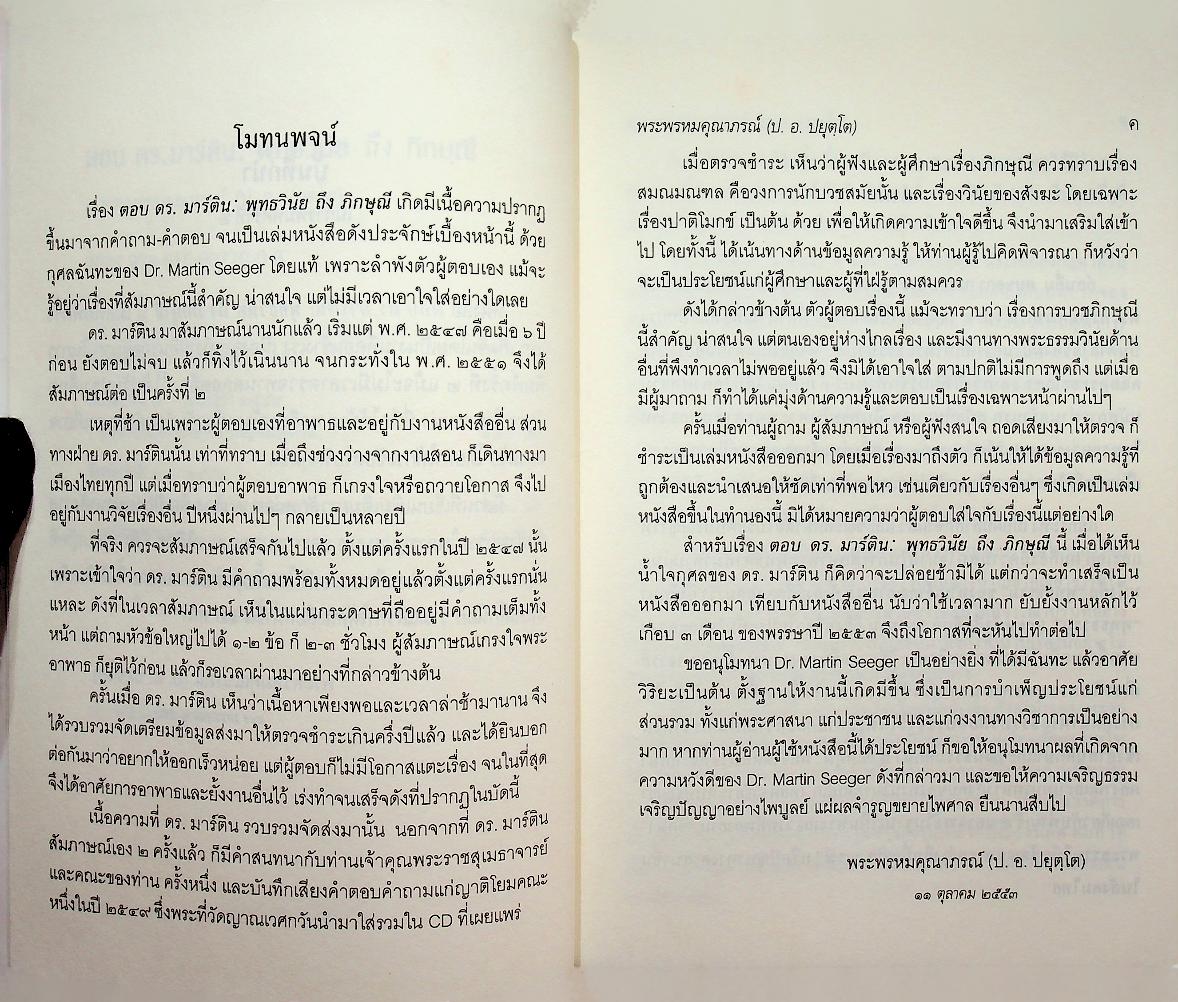 โมทนพจน์
เรื่อง ตอบ ดร. มาร์ติน: พุทธวินัย ถึง ภิกษุณี เกิดมีเนื้อความปรากฏ
ขึ้นมาจากคำถาม-คำตอบ จนเป็นเล่มหนังสือดังประจักษ์เบื้องหน้านี้ ด้วย
กุศลฉันทะของ Dr. Martin Seeger โดยแท้ เพราะลำพังตัวผู้ตอบเอง แม้จะ
รู้อยู่ว่าเรื่องที่สัมภาษณ์นี้สำคัญ น่าสนใจ แต่ไม่มีเวลาเอาใจใส่อย่างใดเลย
ดร. มาร์ติน มาสัมภาษณ์นานนักแล้ว เริ่มแต่ พ.ศ. ๒๕๔๗ คือเมื่อ ๖ ปี
ก่อน ยังตอบไม่จบ แล้วก็ทิ้งไว้เนิ่นนาน จนกระทั่งใน พ.ศ. ๒๕๕๑ จึงได้
สัมภาษณ์ต่อ เป็นครั้งที่ ๒
เหตุที่ช้า เป็นเพราะผู้ตอบเองที่อาพาธและอยู่กับงานหนังสืออื่น ส่วน
ทางฝ่าย ดร. มาร์ตินนั้น เท่าที่ทราบ เมื่อถึงช่วงว่างจากงานสอน ก็เดินทางมา
เมืองไทยทุกปี แต่เมื่อทราบว่าผู้ตอบอาพาธ ก็เกรงใจหรือถวายโอกาส จึงไป
อยู่กับงานวิจัยเรื่องอื่น ปีหนึ่งผ่านไปๆ กลายเป็นหลายปี
ที่จริง ควรจะสัมภาษณ์เสร็จกันไปแล้ว ตั้งแต่ครั้งแรกในปี ๒๕๔๗ นั้น
เพราะเข้าใจว่า ดร. มาร์ติน มีคำถามพร้อมทั้งหมดอยู่แล้วตั้งแต่ครั้งแรกนั่น
แหละ ดังที่ในเวลาสัมภาษณ์ เห็นในแผ่นกระดาษที่ถืออยู่มีคำถามเต็มทั้ง
หน้า แต่ถามหัวข้อใหญ่ไปได้ ๑-๒ ข้อ ก็ ๒-๓ ชั่วโมง ผู้สัมภาษณ์เกรงใจพระ
อาพาธ ก็ยุติไว้ก่อน แล้วก็รอเวลาผ่านมาอย่างที่กล่าวข้างต้น
ครั้นเมื่อ ดร. มาร์ติน เห็นว่าเนื้อหาเพียงพอและเวลาล่าช้ามานาน จึง
ได้รวบรวมจัดเตรียมข้อมูลส่งมาให้ตรวจชำระเกินครึ่งปีแล้ว และได้ยินบอก
ต่อกันมาว่าอยากให้ออกเร็วหน่อย แต่ผู้ตอบก็ไม่มีโอกาสแตะเรื่อง จนในที่สุด
จึงได้อาศัยการอาพาธและยั้งงานอื่นไว้ เร่งทำจนเสร็จดังที่ปรากฏในบัดนี้
เนื้อความที่ ดร. มาร์ติน รวบรวมจัดส่งมานั้น นอกจากที่ ดร. มาร์ติน
สัมภาษณ์เอง ๒ ครั้งแล้ว ก็มีคำสนทนากับท่านเจ้าคุณพระราชสุเมธาจารย์
และคณะของท่าน ครั้งหนึ่ง และบันทึกเสียงคำตอบคำถามแก่ญาติโยมคณะ
หนึ่งในปี ๒๕๔๙ ซึ่งพระที่วัดญาณเวศกวันนำมาใส่รวมใน CD ที่เผยแพร่
พระพรหมคุณาภรณ์ (ป. อ. ปยุตฺโต) ค
เมื่อตรวจชำระ เห็นว่าผู้ฟังและผู้ศึกษาเรื่องภิกษุณี ควรทราบเรื่อง
สมณมณฑล คือวงการนักบวชสมัยนั้น และเรื่องวินัยของสังฆะ โดยเฉพาะ
เรื่องปาติโมกข์ เป็นต้น ด้วย เพื่อให้เกิดความเข้าใจดีขึ้น จึงนำมาเสริมใส่เข้า
ไป โดยทั้งนี้ ได้เน้นทางด้านข้อมูลความรู้ ให้ท่านผู้รู้ไปคิดพิจารณา ก็หวังว่า
จะเป็นประโยชน์แก่ผู้ศึกษาและผู้ที่ใฝ่รู้ตามสมควร
ดังได้กล่าวข้างต้น ตัวผู้ตอบเรื่องนี้ แม้จะทราบว่า เรื่องการบวชภิกษุณี
นี้สำคัญ น่าสนใจ แต่ตนเองอยู่ห่างไกลเรื่อง และมีงานทางพระธรรมวินัยด้าน
อื่นที่พึงทำเวลาไม่พออยู่แล้ว จึงมิได้เอาใจใส่ ตามปกติไม่มีการพูดถึง แต่เมื่อ
มีผู้มาถาม ก็ทำได้แค่มุ่งด้านความรู้และตอบเป็นเรื่องเฉพาะหน้าผ่านไปๆ
ครั้นเมื่อท่านผู้ถาม ผู้สัมภาษณ์ หรือผู้ฟังสนใจ ถอดเสียงมาให้ตรวจ ก็
ชำระเป็นเล่มหนังสือออกมา โดยเมื่อเรื่องมาถึงตัว ก็เน้นให้ได้ข้อมูลความรู้ที่
ถูกต้องและนำเสนอให้ชัดเท่าที่พอไหว เช่นเดียวกับเรื่องอื่นๆ ซึ่งเกิดเป็นเล่ม
หนังสือขึ้นในทำนองนี้ มิได้หมายความว่าผู้ตอบใส่ใจกับเรื่องนี้แต่อย่างใด
สำหรับเรื่อง ตอบ ดร. มาร์ติน: พุทธวินัย ถึง ภิกษุณี นี้ เมื่อได้เห็น
น้ำใจกุศลของ ดร. มาร์ติน ก็คิดว่าจะปล่อยช้ามิได้ แต่กว่าจะทำเสร็จเป็น
หนังสือออกมา เทียบกับหนังสืออื่น นับว่าใช้เวลามาก ยับยั้งงานหลักไว้
เกือบ ๓ เดือน ของพรรษาปี ๒๕๕๓ จึงถึงโอกาสที่จะหันไปทำต่อไป
ขออนุโมทนา Dr. Martin Seeger เป็นอย่างยิ่ง ที่ได้มีฉันทะ แล้วอาศัย
วิริยะเป็นต้น ตั้งฐานให้งานนี้เกิดมีขึ้น ซึ่งเป็นการบำเพ็ญประโยชน์แก่
ส่วนรวม ทั้งแก่พระศาสนา แก่ประชาชน และแก่วงงานทางวิชาการเป็นอย่าง
มาก หากท่านผู้อ่านผู้ใช้หนังสือนี้ได้ประโยชน์ ก็ขอให้อนุโมทนาผลที่เกิดจาก
ความหวังดีของ Dr. Martin Seeger ดังที่กล่าวมา และขอให้ความเจริญธรรม
เจริญปัญญาอย่างไพบูลย์ แผ่ผลจำรูญขยายไพศาล ยืนนานสืบไป
พระพรหมคุณาภรณ์ (ป. อ. ปยุตฺโต)
๑๑ ตุลาคม ๒๕๕๓